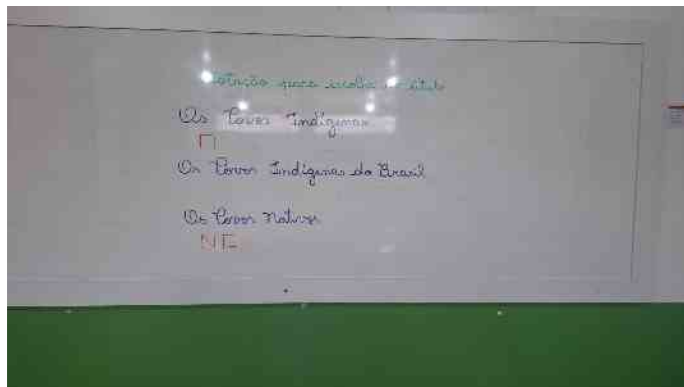 Votação para escolha do título
Os Povos Indígenas
Os Povos Indígenas do Brasil
Os Povos Nativos